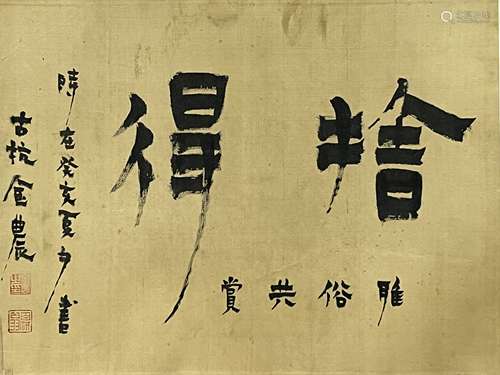 捨得
雅俗共賞
時在癸亥夏書
古杭金農